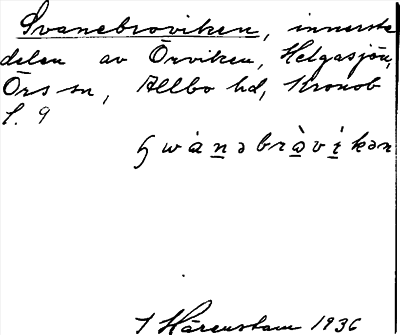 Svanebroviken, innerste
delen av Örviken, Helgasjön,
Örs sn, Allbo hd, Kronob
l. 9
I Härenstam 1936